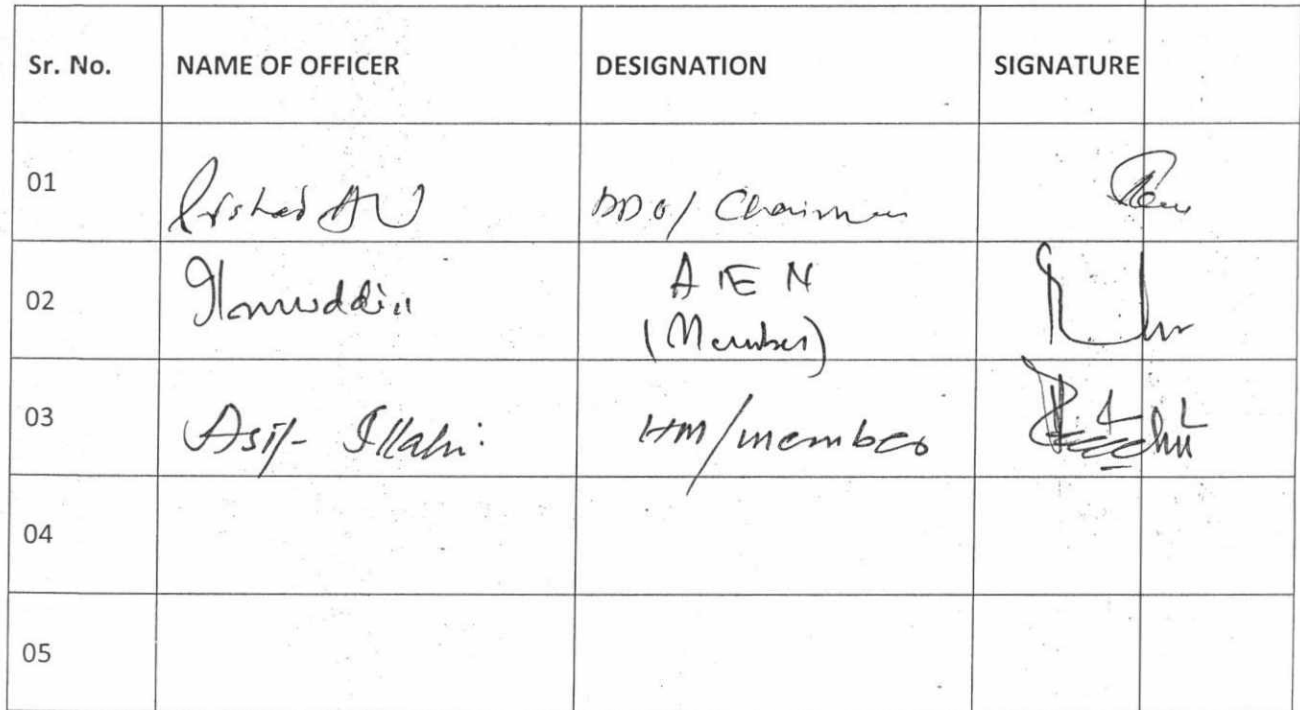 Sr. No. NAME OF OFFICER DESIGNATION SIGNATURE
01 Irshad Ali DDO/ Chairman
02 A E N
(Member)
03 Asif Illahi HM/member
04
05